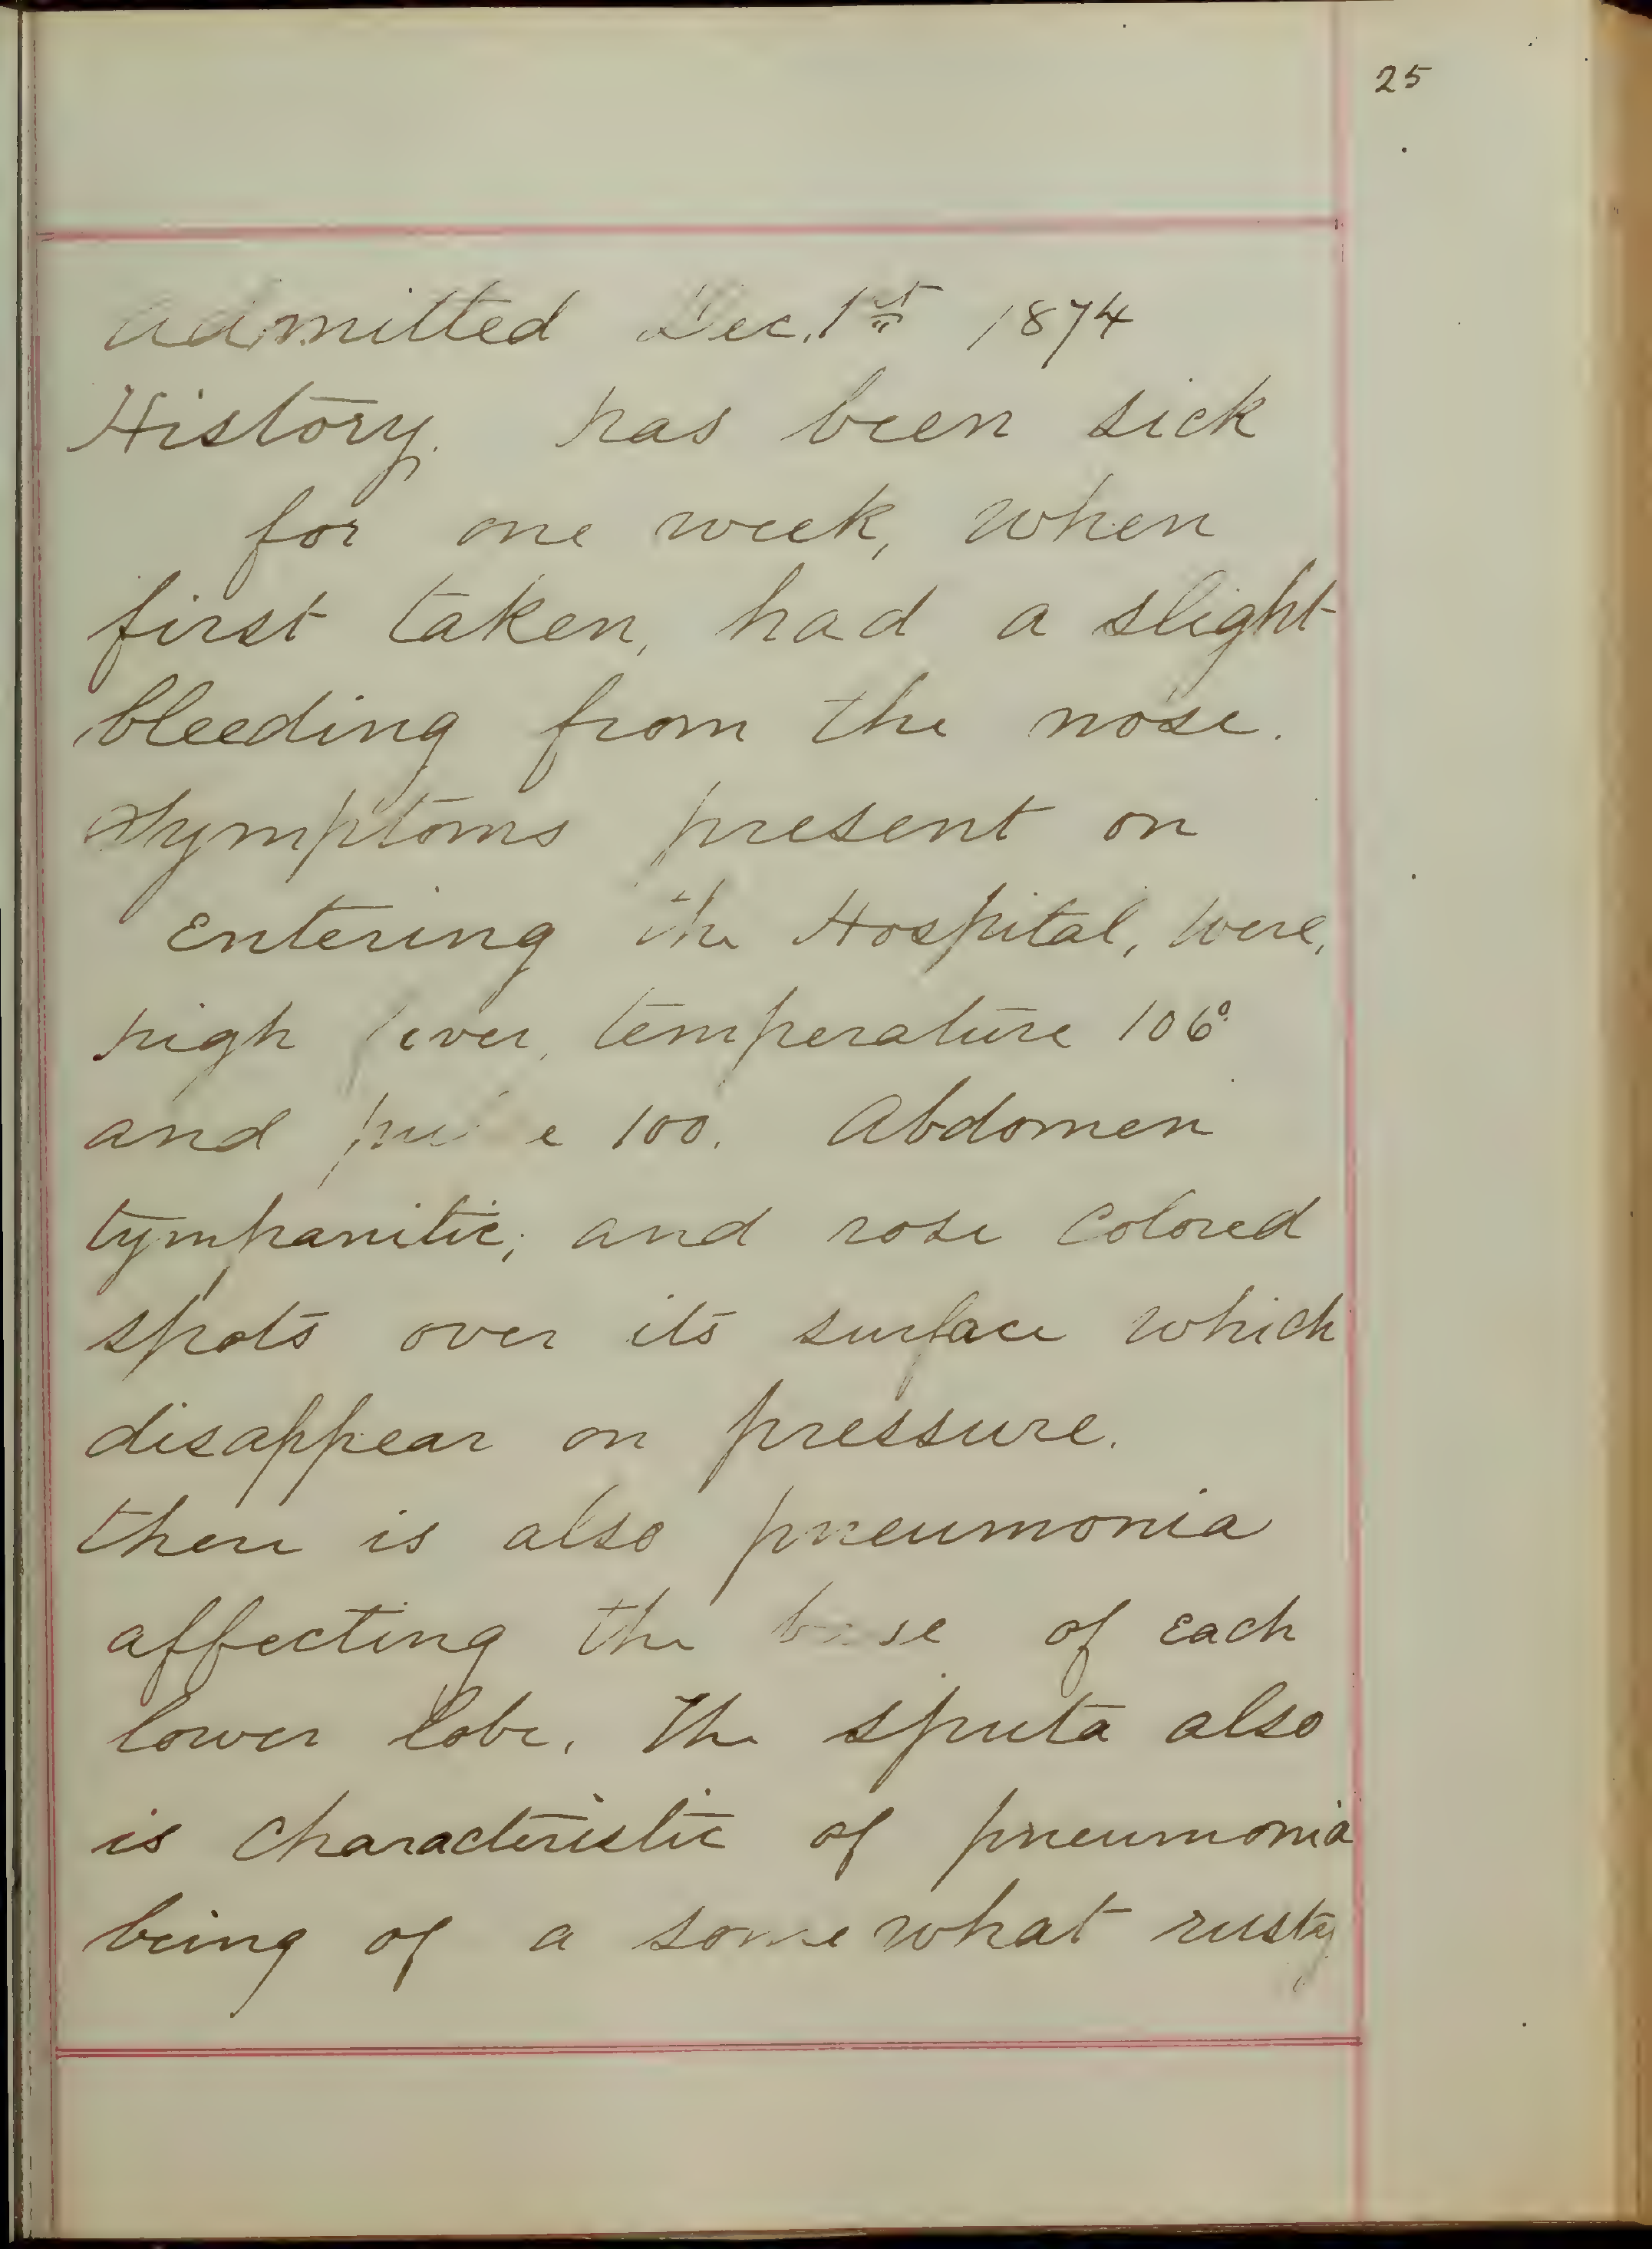 25
Admitted Dec. 1st 1874
History. has been sick
for one week, when
first taken, had a slight
bleeding from the nose.
Symptoms present on
Entering the Hospital, were,
high fever, temperature 106°
and pulse 100. Abdomen
tympanitic; and rose colored
spots over its surface which
disappear on pressure.
there is also pneumonia
affecting the base of each
lower lobe. The sputa also
is characteristic of pneumonia
being of a somewhat rusty